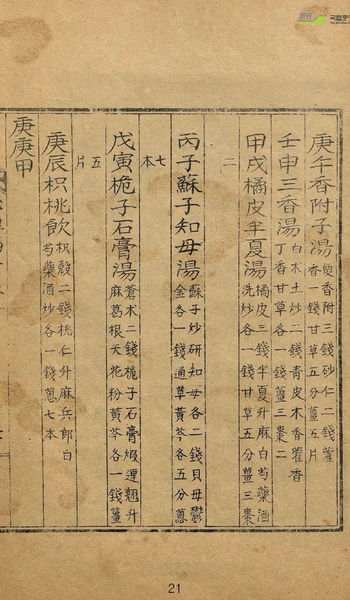 庚午香附子湯 便香附三錢砂仁二錢藿
香一錢甘草五分薑五片
壬申三香湯 白木土炒二錢青皮木香藿香
丁香甘草各一錢薑三棗二
甲戌橘皮半夏湯 橘皮三錢半夏升麻白芍藥酒
洗炒各一錢甘草五分薑三棗
二
丙子蘇子知母湯 蘇子炒研知母各二錢貝母鬱
金各一錢通草黃芩各五分蔥
七本
戊寅梔子石膏湯 蒼木二錢梔子石膏煆連翹升
麻葛根天花粉黃芩各一錢薑
五片
庚辰枳桃飲 枳殼二錢桃仁升麻兵郎白
芍藥酒炒各一錢蔥七本
庚庚甲
21